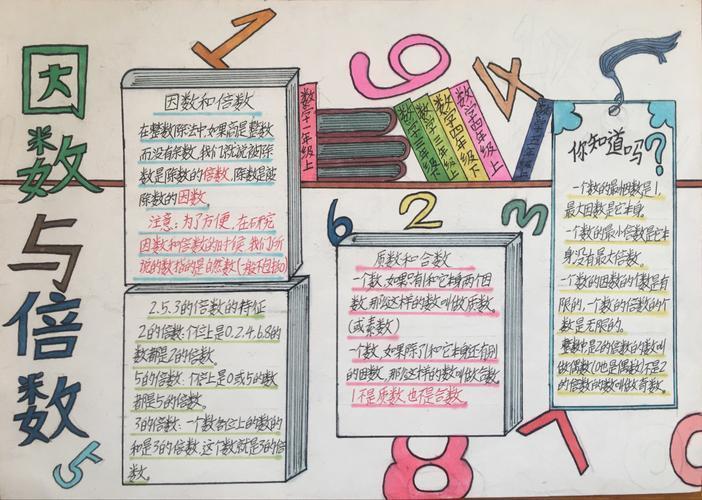 因数与倍数
1
9
4
6
2
3
5
8
7
0
因数和倍数
在整数除法中,如果商是整数
而没有余数,我们就说被除
数是除数的倍数,除数是被
除数的因数。
注意:为了方便,在研究
因数和倍数的时候,我们所
说的数指的是自然数(一般不包括0)
2.5.3的倍数的特征
2的倍数:个位上是0.2.4.6.8的
数都是2的倍数。
5的倍数:个位上是0或5的数
都是5的倍数。
3的倍数:一个数各位上的数的
和是3的倍数,这个数就是3的倍
数。
数学一年级上
数学三年级
数学四年级下
数学四年级上
数学五年级上
质数和合数
一个数,如果只有1和它本身两个因
数,那么这样的数叫做质数。
(或素数)
一个数,如果除了1和它本身还有别
的因数,那么这样的数叫做合数
1不是质数,也不是合数。
你知道吗?
一个数的最小因数是1,
最大因数是它本身。
一个数的最小倍数是它本
身,没有最大倍数。
一个数的因数的个数是有
限的,一个数的倍数的个
数是无限的。
整数中,是2的倍数的数叫
做偶数(0也是偶数)不是2
的倍数的数叫做奇数。